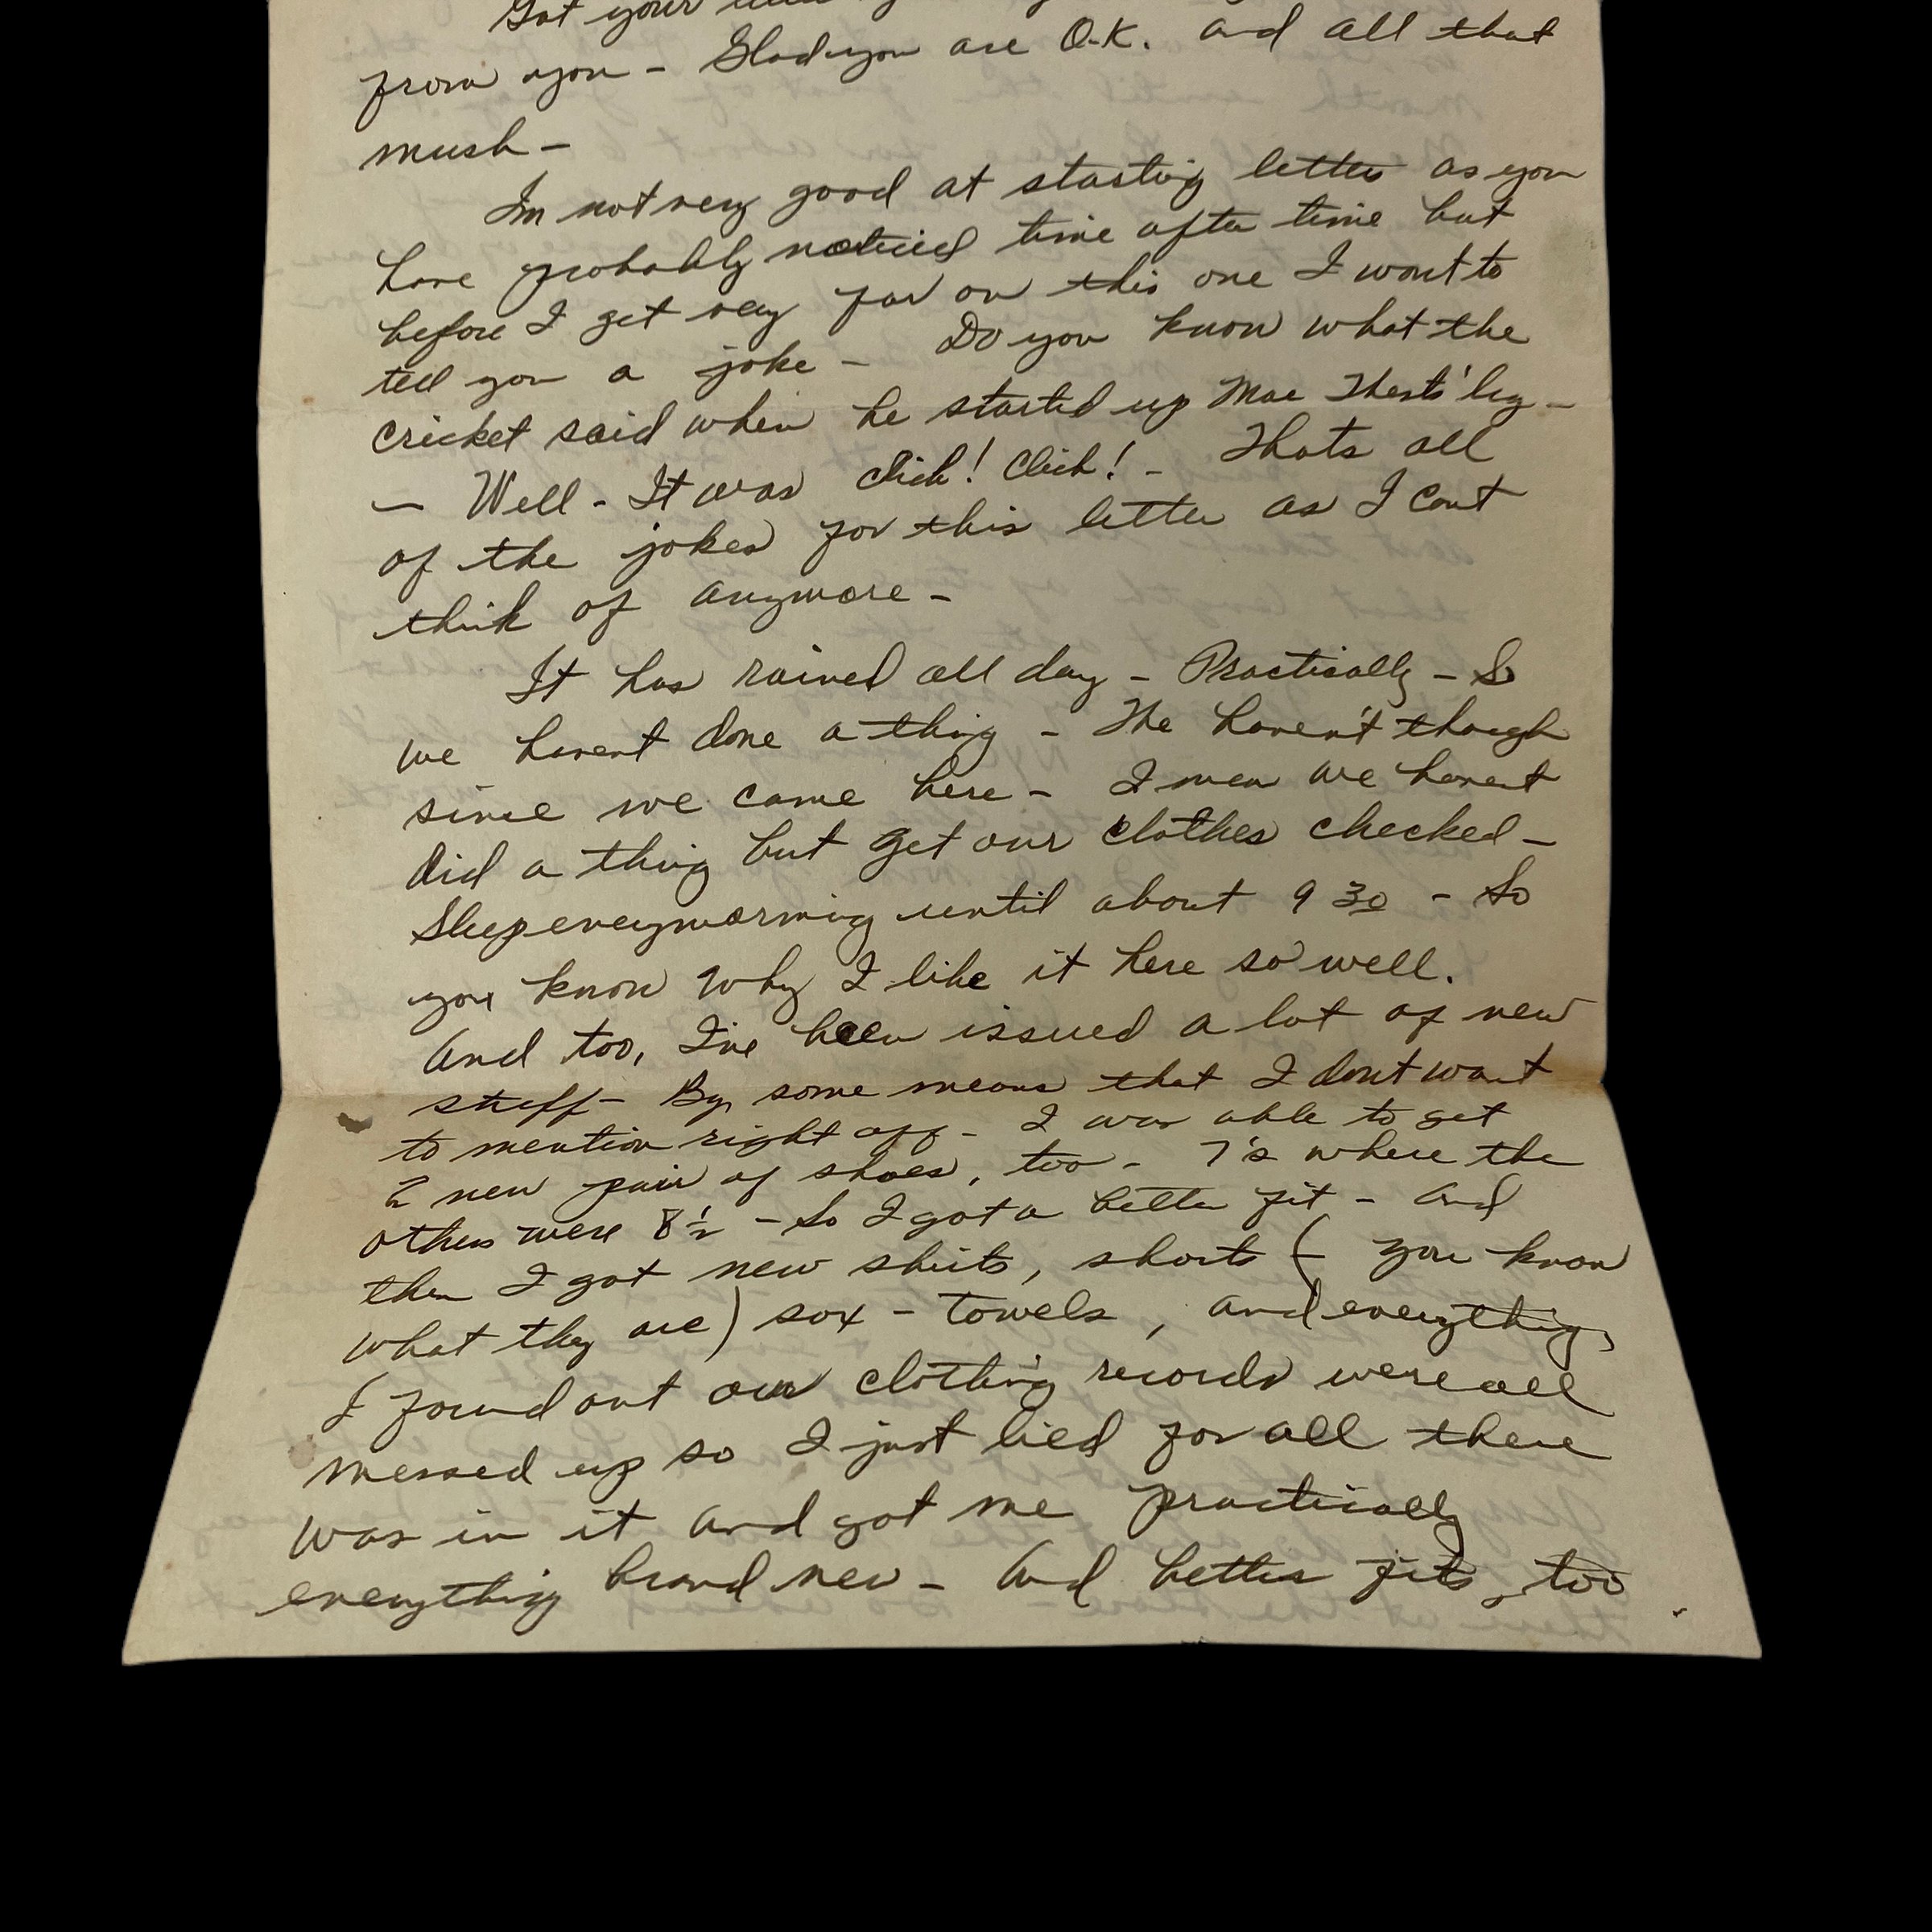 Got your
from you - Glad you are O.K. and all that
mush -
Im not very good at starting letter as you
have probably noticed time after time but
before I get very far on this one I want to
tell you a joke - Do you know what the
cricket said when he started up Mae Wests' leg -
- Well - It was Click! Click! - Thats all
of the jokes for this letter as I cant
think of anymore -
It has rained all day - Practically - So
we havent done a thing - We haven't though
since we came here - I mean we havent
did a thing but get our clothes checked -
Sleep everymorning until about 9 30 - So
you know why I like it here so well.
And too, I've been issued a lot of new
stuff - By some means that I dont want
to mention right off - I was able to get
2 new pair of shoes, too - 7's where the
others were 8½ - So I got a better fit - And
then I got new shirts, shorts (- you know
what they are) sox - towels, and everything,
I found out our clothing records were all
messed up so I just lied for all there
was in it and got me practically
everything brand new - And better fits, too.